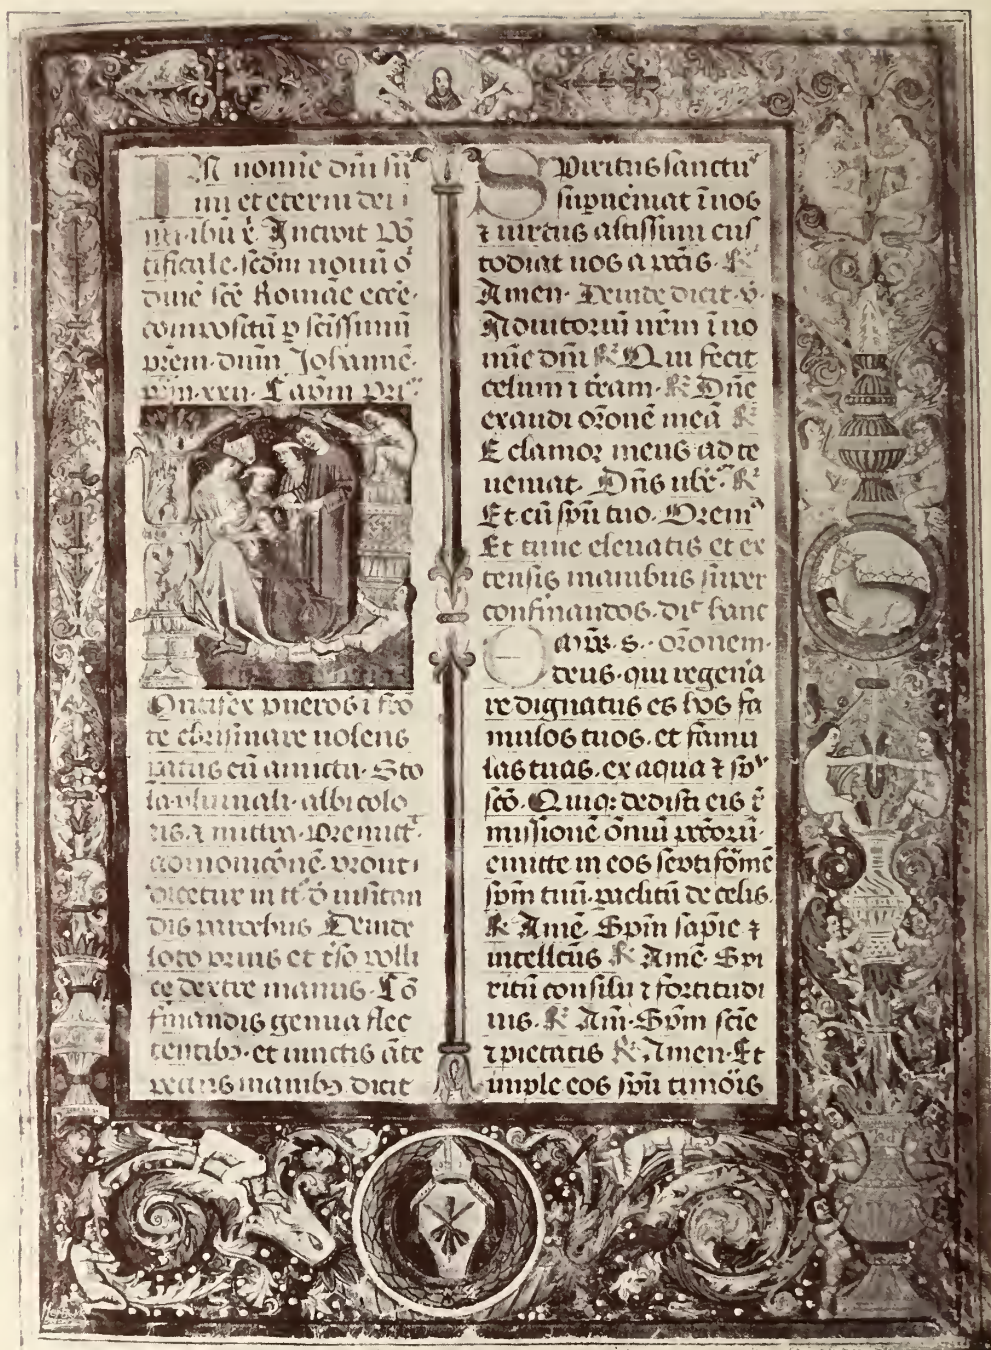 IN nomine dni sū
mi et eterni dei ī
Incipit Pō
tificale scdm nouū o͛
dinē scē Romāe ecce
compositū p scissimū
prem dnm Johannē
xxii Capm Pri
Pontifex pueros ī fro
te chrismare uolens
patus cū amictu Sto
la pluuiali albi colo
ris ⁊ mitra
pront
dicetur in tt͛ ō
dis Deinde
loto prius et t͛so polli
ce dextre manus Cō
fīmandis genua flec
tentibꝫ et iunctis āte
manibꝫ dicit
Spiritus sanctu͛
supueniat ī uos
⁊ uirtus altissimi cus
todiat uos a pccis ℟
Amen Deinde dicit v
Adiutoriū nrm ī no
mīe dni ℟ Qui fecit
celum ⁊ t͛ram ℟ Dne
exaudi orōnē meā ℟
E clamor meus ad te
ueniat Dns ubc ℟
Et cū spū tuo Orem͛
Et tunc eleuatis et ex
tensis manibus super
confirmandos dic͛ hanc
s orōnem
deus qui regena
re dignatus es hos fa
mulos tuos et famu
las tuas ex aqua ⁊ spu
scō Quiqꝫ dedisti eis r͛
missionē ōniū pccorū
emitte in eos septifōmē
spm tuū paclitū de celis
℟ Amē Spm sapie ⁊
intellctus ℟ Amē Spi
ritū consilii ⁊ fortitudi
nis ℟ Am Spm scie
⁊ pietatis ℟ Amen Et
imple eos spū timois